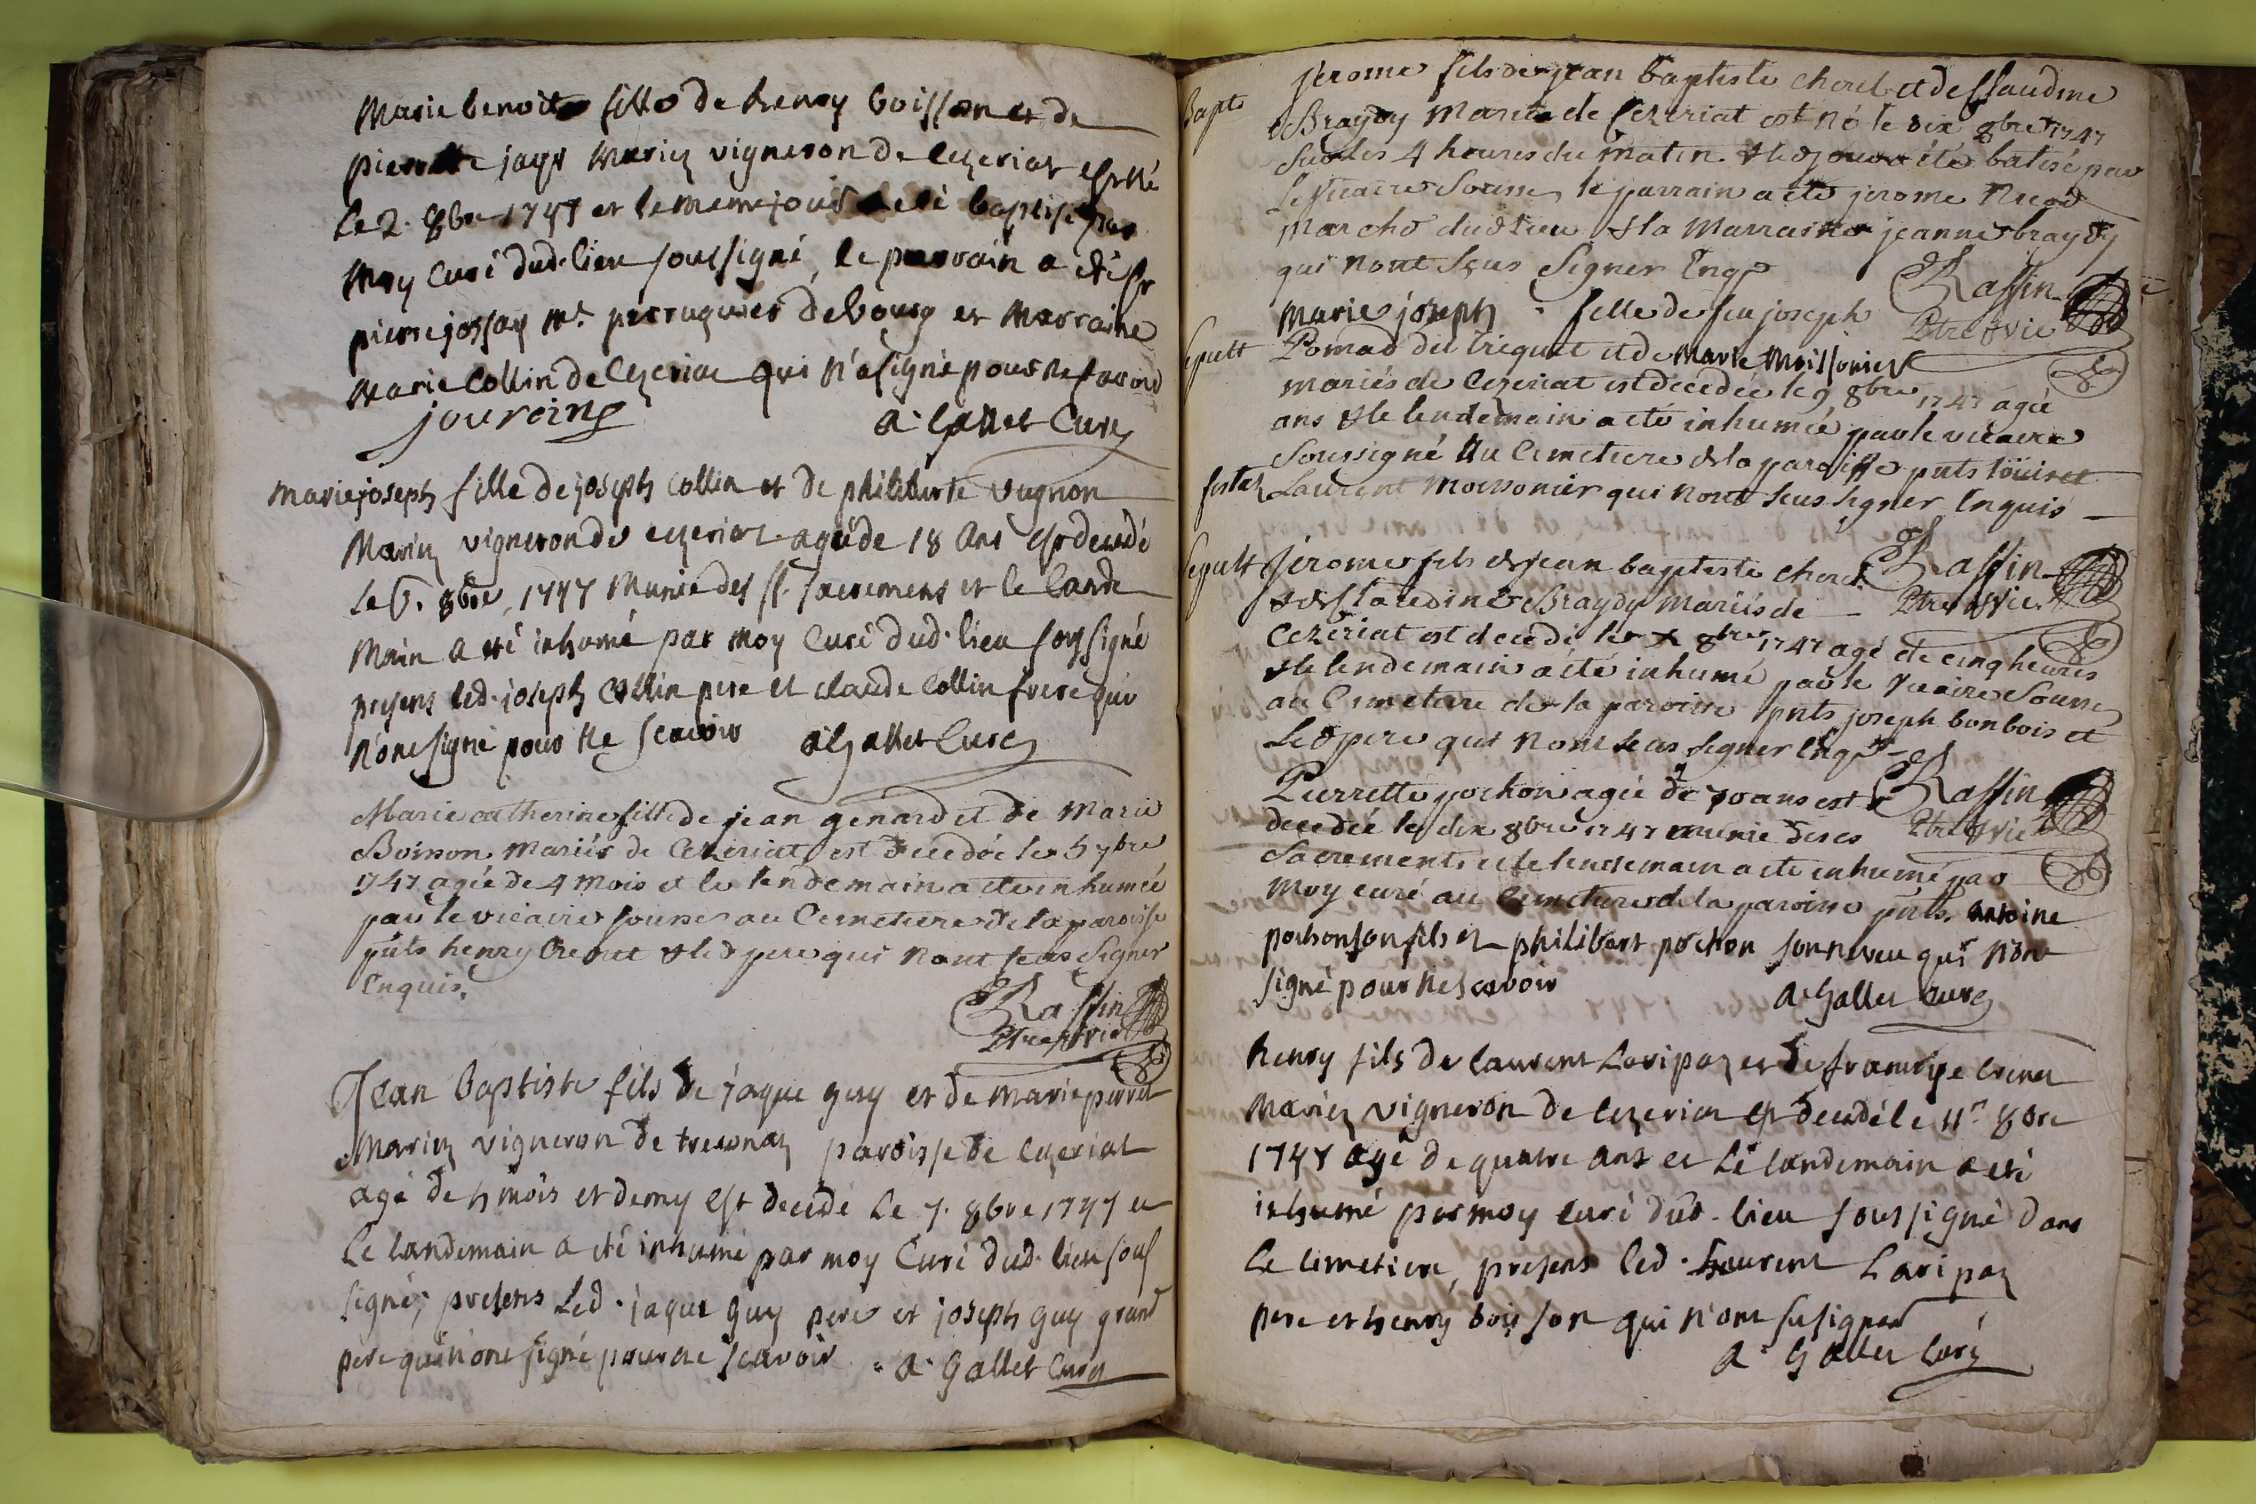 Marie benoite fille de henry boisson et de
pierrette jayr mariez vigneron de cezeriat est né
Le 2. 8bre 1747 et le meme jour a eté baptisé par
moy Curé dud. lieu soussigné, le parrain a été sr
pierre jossay mt. perruquier de bourg et marraine
marie Collin de Cezeriat qui n'a signé pour ne savoir
A. Gallet Curé
marie joseph fille de joseph collin et de philiberte vugnon
Mariez vigneron de cezeriat. agé de 18 ans est decedé
le 6. 8bre, 1747 munie des st. sacremens et le lande
main a eté inhumé par moy Curé dud. lieu soussigné
presens led. joseph Collin pere et claude Collin frere qui
n'one signé pour ne scavoir A Gallet Curé
Marie catherine fille de jean genard et de Marie
Boisson mariés de Cezeriat est decedée le 5 7bre
1747 agée de 4 mois et le lendemain a eté inhumée
par le vicaire sousse au Cemetiere de la paroisse
pnts henry Crenet & led pere qui nont sçus signer
Enquis.
Raffin
Ptre & vic
Jean baptiste fils de jaque guy et de marie perret
Mariez vigneron de tresonaz paroisse de Cezeriat
agé de 4 mois et demy est decedé Le 7. 8bre 1747 et
Le landemain a eté inhumé par moy Curé dud. lieu sous
signé, presens Led. jaque guy pere et joseph guy grand
pere qui n'one signé pour ne scavoir. A. Gallet Curé
Bapt
jerome fils de jean baptiste cherel et de Claudine
Braydy Mariés de Cezeriat est né le dix 8bre 1747
sur les 4 heures du matin. & led jour a été batisé par
Le vicaire Sousse, le parrain a eté jerome
dud lieu & la Marraine jeanne braydy
qui nont sçus signer Enqs
Raffin
Ptre & vic
Sepult
Marie joseph fille de feu joseph
Pomad dit triquet et de Marie Moissonier
mariés de Cezeriat est decedée le 9 8bre 1747 agée
ans & le lendemain a eté inhumée par le vicaire
soussigné Au Cemetiere de la paroisse pnts
Laurent moissonier qui nont sçus signer Enquis
Raffin
Ptre & Vic.
Sepult
jerome fils de jean baptiste cherel
& de Claudine Braydy mariés de
Cezeriat est decedé le X 8bre 1747 agé de cinq heures
& le lendemain a été inhumé par le Vicaire Sousse
au Cemetiere de la paroisse pnts joseph bonbois et
Led pere qui nont sçus signer Enqs
Raffin
Ptre & Vic
Pierrette pochon agée de 70 ans est
decedée le dix 8bre 1747 munie des
Sacrements et le lendemain a eté inhumé par
Moy curé au Cemetiere de la paroisse pnts. antoine
pochon son fils et philibert pochon son neveu qui n'one
signé pour ne scavoir A. Gallet Curé
henry fils de laurent Laripaz et de françoise crenet
Mariez vigneron de Cezeriat est decedé le 11e 8bre
1747 agé de quatre ans et Le landemain a eté
inhumé par moy Curé dud. lieu soussigné dans
Le cimetiere, presens led. Laurent Laripaz
pere et henry boisson qui n'one su signer
A. Gallet Curé